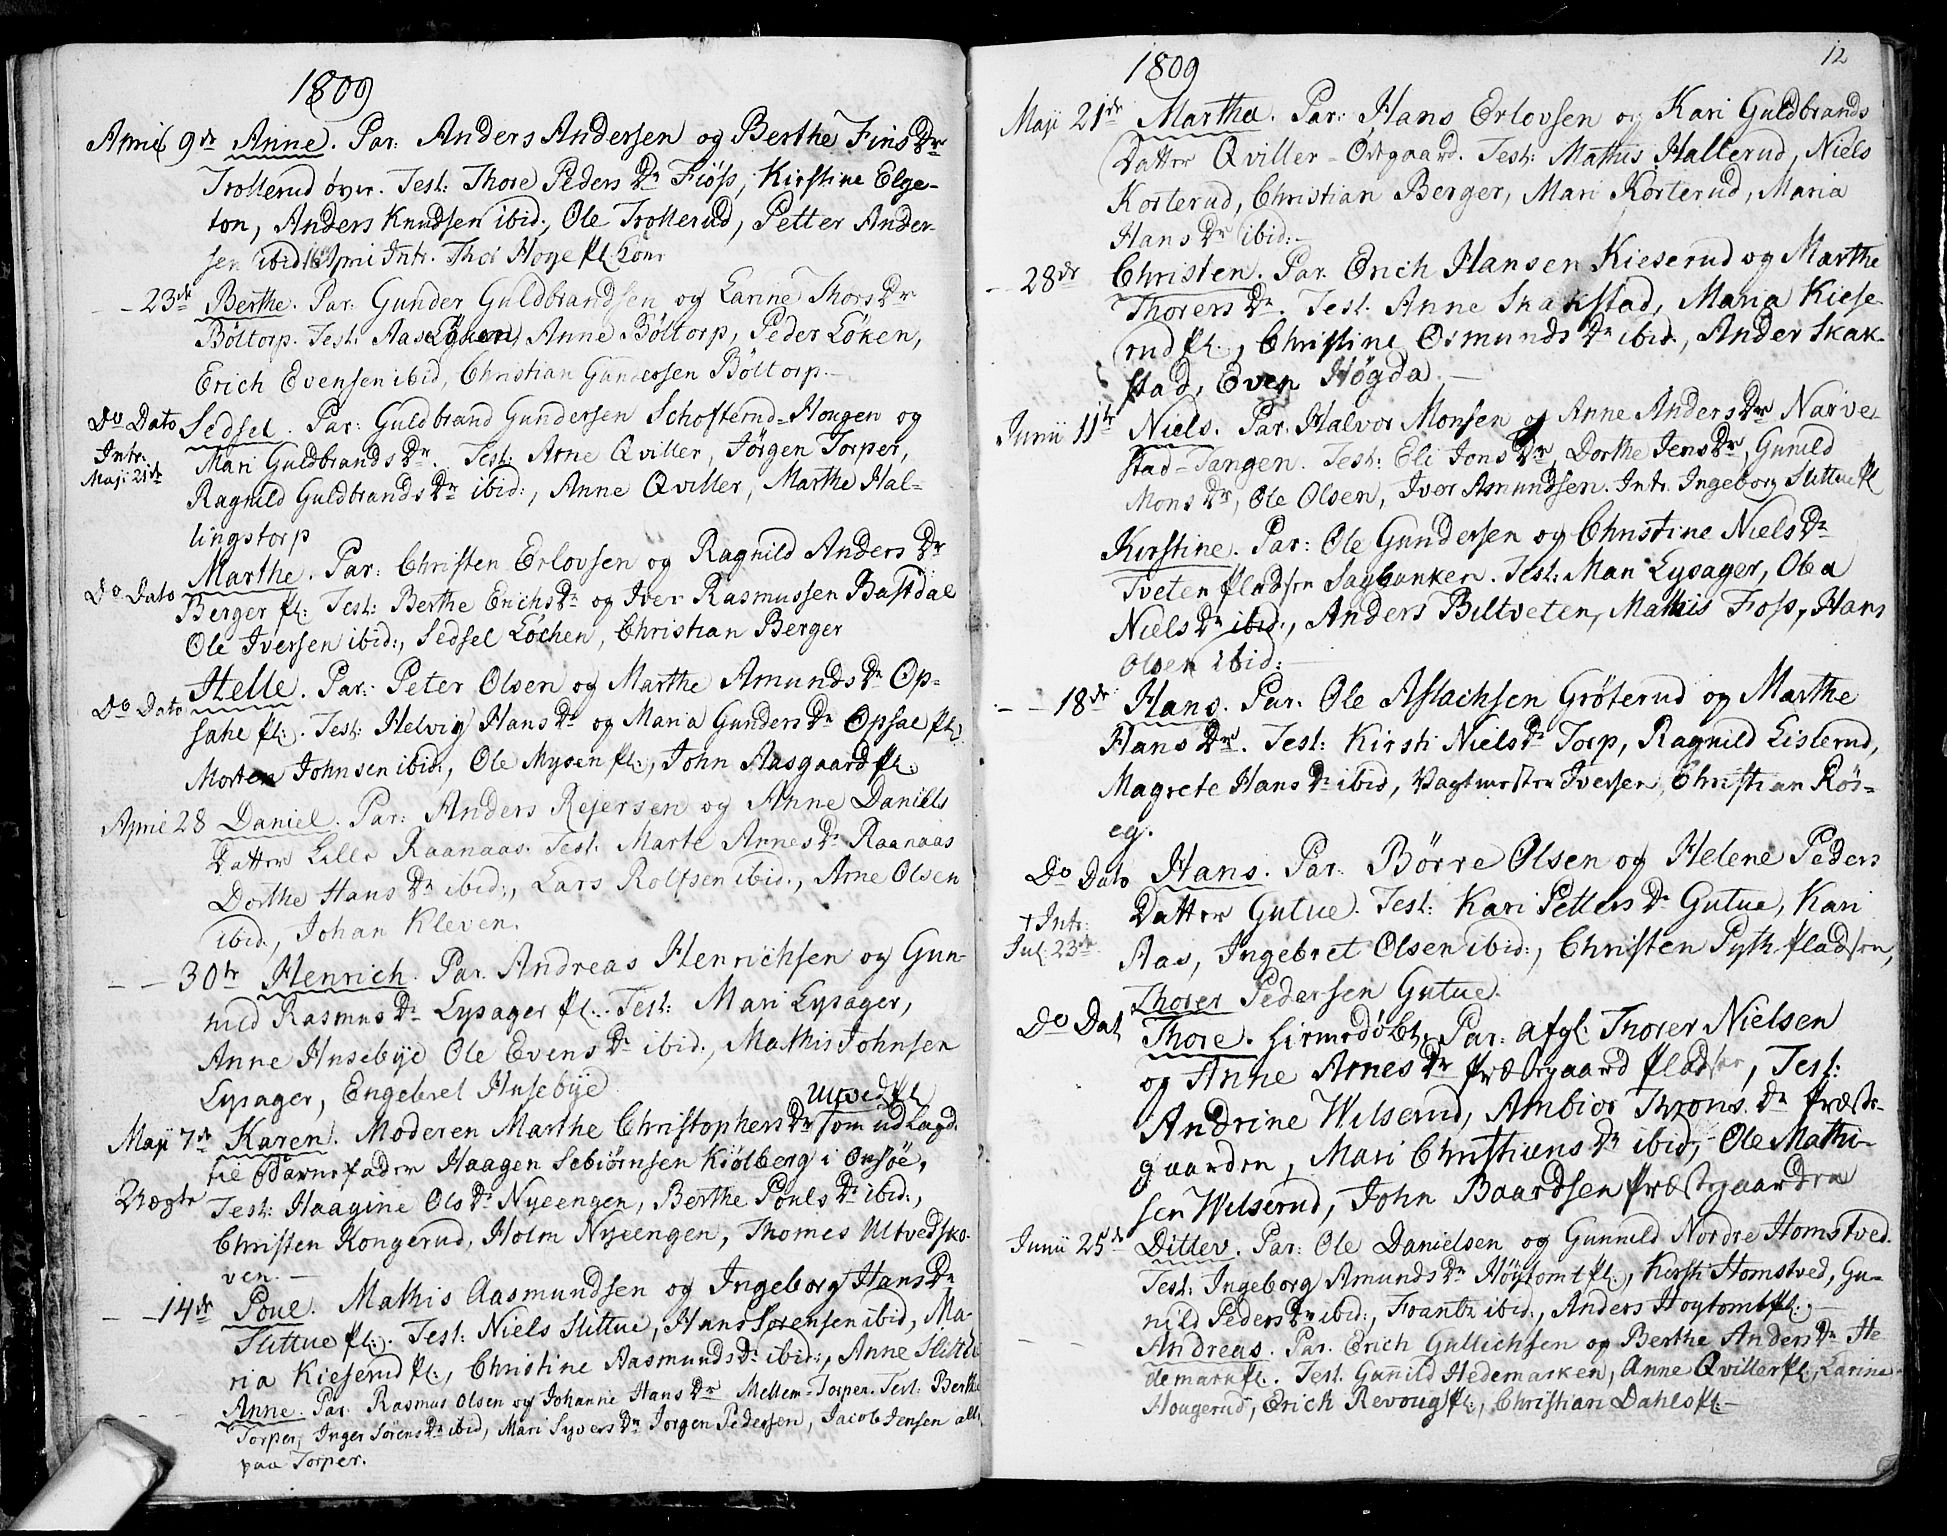 1809
April 9de Anne. Par: Anders Andersen og Berthe Fins Dr
Trollerud øver. Test: Thore Peders Dr Fiøss, Kirstine Elge-
ton, Anders Knudsen ibid:, Ole Trollerud, Petter Ander-
sen ibid Intr. Thor Hoye pl. Kone
- 23de Berthe. Par: Gunder Guldbrandsen og Karine Thors Dr
Böltorp. Test: Aase Löken, Anne Böltorp, Peder Löken,
Erich Evensen ibid, Christian Gundersen Böltorp. —
Do Dato Sedsel. Par: Guldbrand Gundersen Schofterud-Hougen og
Intr. Maji 21de Mari Guldbrands Dr. Test: Arne Qviller, Jörgen Torper,
Ragnild Guldbrands Dr ibid:, Anne Qviller, Marthe Hal-
lingstorp
Do Dato Marthe. Par: Christen Erlovsen og Ragnild Anders Dr
Berger pl: Test: Berthe Erichs Dr og Iver Rasmussen Bastdal
Ole Iversen ibid:, Sedsel Löchen, Christian Berger
Do Dato Helle. Par: Peter Olsen og Marthe Amunds Dr Op-
sahe pl:. Test: Helvig Hans Dr og Maria Gunders Dr Opsal pl:
Morten Johnsen ibid:, Ole Mysen pl:, John Aasgaard pl:
April 28 Daniel. Par: Anders Rejersen og Anne Daniels
Datter Lille Raanaas. Test: Marte Arnes Dr Raanaas
Dorthe Hans Dr ibid:, Lars Rolfsen ibid., Arne Olsen
ibid:, Johan Kleven.
- - 30te Henrich. Par. Andreas Henrichsen og Gun-
nild Rasmus Dr Lysager pl:. Test: Mari Lysager,
Anne Husebye Ole Evens Dr ibid:, Mathis Johnsen
Lysager, Engebret Husebye
Maji 7de Karen. Moderen Marthe Christophers Dr Utved pl som udlagd
til Barnefader Haagen Sebiörnsen Kiölberg i Onsöe,
Test: Haagine Ols Dr Nyeengen, Berthe Pouls Dr ibid:,
Christen Kongerud, Holm Nyeengen, Thomes Ultvedsko-
ven. —
- - 14de Poul. Mathis Aasmundsen og Ingeborg Hans Dr
Slittue pl:. Test: Niels Slittue, Hans Sørensen ibid, Ma-
ria Kieserud pl:, Christine Aasmunds Dr ibid:, Anne Slittu
- - Anne. Par. Rasmus Olsen og Johanne Hans Dr Mellem-Torper. Test: Berthe
Torper, Inger Sörens Dr ibid, Mari Syvers Dr Jorgen Pedersen, Jacob Jensen alle
paa Torper.
12
1809
Maji 21de Martha. Par: Hans Erlovsen og Kari Guldbrands
Datter Qviller-Ödegaard. Test: Mathis Hallerud, Niels
Korterud, Christian Berger, Mari Korterud, Maria
Hans Dr ibid: —
- 28de Christen. Par. Erich Hansen Kieserud og Marthe
Thorers Dr. Test. Anne Skakstad, Maria Kiese-
rud pl:, Christine Osmunds Dr ibid., Ander Skak-
stad, Even Högda. —
Junii 11te Niels. Par. Halvor Monsen og Anne Anders Dr Narve-
stad-Tangen. Test: Eli Jons Dr, Dorthe Jens Dr, Gunild
Mons Dr, Ole Olsen, Iver Asmundsen. Intr. Ingeborg Slittue pl
Kirstine. Par: Ole Gundersen og Christine Niels Dr
Tveten pladsen Saybanken. Test: Mari Lysager, Olea
Niels Dr ibid:, Anders Biltveten, Mathis Foss, Hans
Olsen ibid: —
- - 18de Hans. Par. Ole Aslachsen Gröterud og Marthe
Hans Dr. Test: Kirsti Niels Dr Torp, Ragnild Lislerud,
Magrete Hans Dr ibid, Vagtmester Iversen, Christian Rös-
eg.
Do Dato Hans. Par. Börre Olsen og Helene Peders
† Intr: Jul: 23de Datter Gutue. Test: Kari Petters Dr Gutue, Kari
Aas, Ingebret Olsen ibid:, Christen Pyth-pladsen,
Thorer Pedersen Gutue.
Do Dat Thore. hiemedöbt. Par: afgl: Thorer Nielsen
og Anne Arnes Dr Præstegaard pladser, Test:
Andrine Wilserud, Ambior Throns Dr Præste-
gaarden, Mari Christians Dr ibid, Ole Mathi-
sen Wilserud, John Baardsen Præstegaarden
Junii 25de Ditlev. Par: Ole Danielsen og Gunnild Nordre Homstved.
Test: Ingeborg Amunds Dr Höytomt pl:, Kirsti Homstved, Gu-
nild Peders Dr ibid:, Frantz ibid:, Anders Hoytomt pl:, —
- Andreas. Par. Erich Gullichsen og Berthe Anders Dr He
demark pl:. Test. Gunild Hedemarken, Anne Qviller pl:, Karine
Hougerud, Erich Revoug pl:, Christian Dahls pl: —